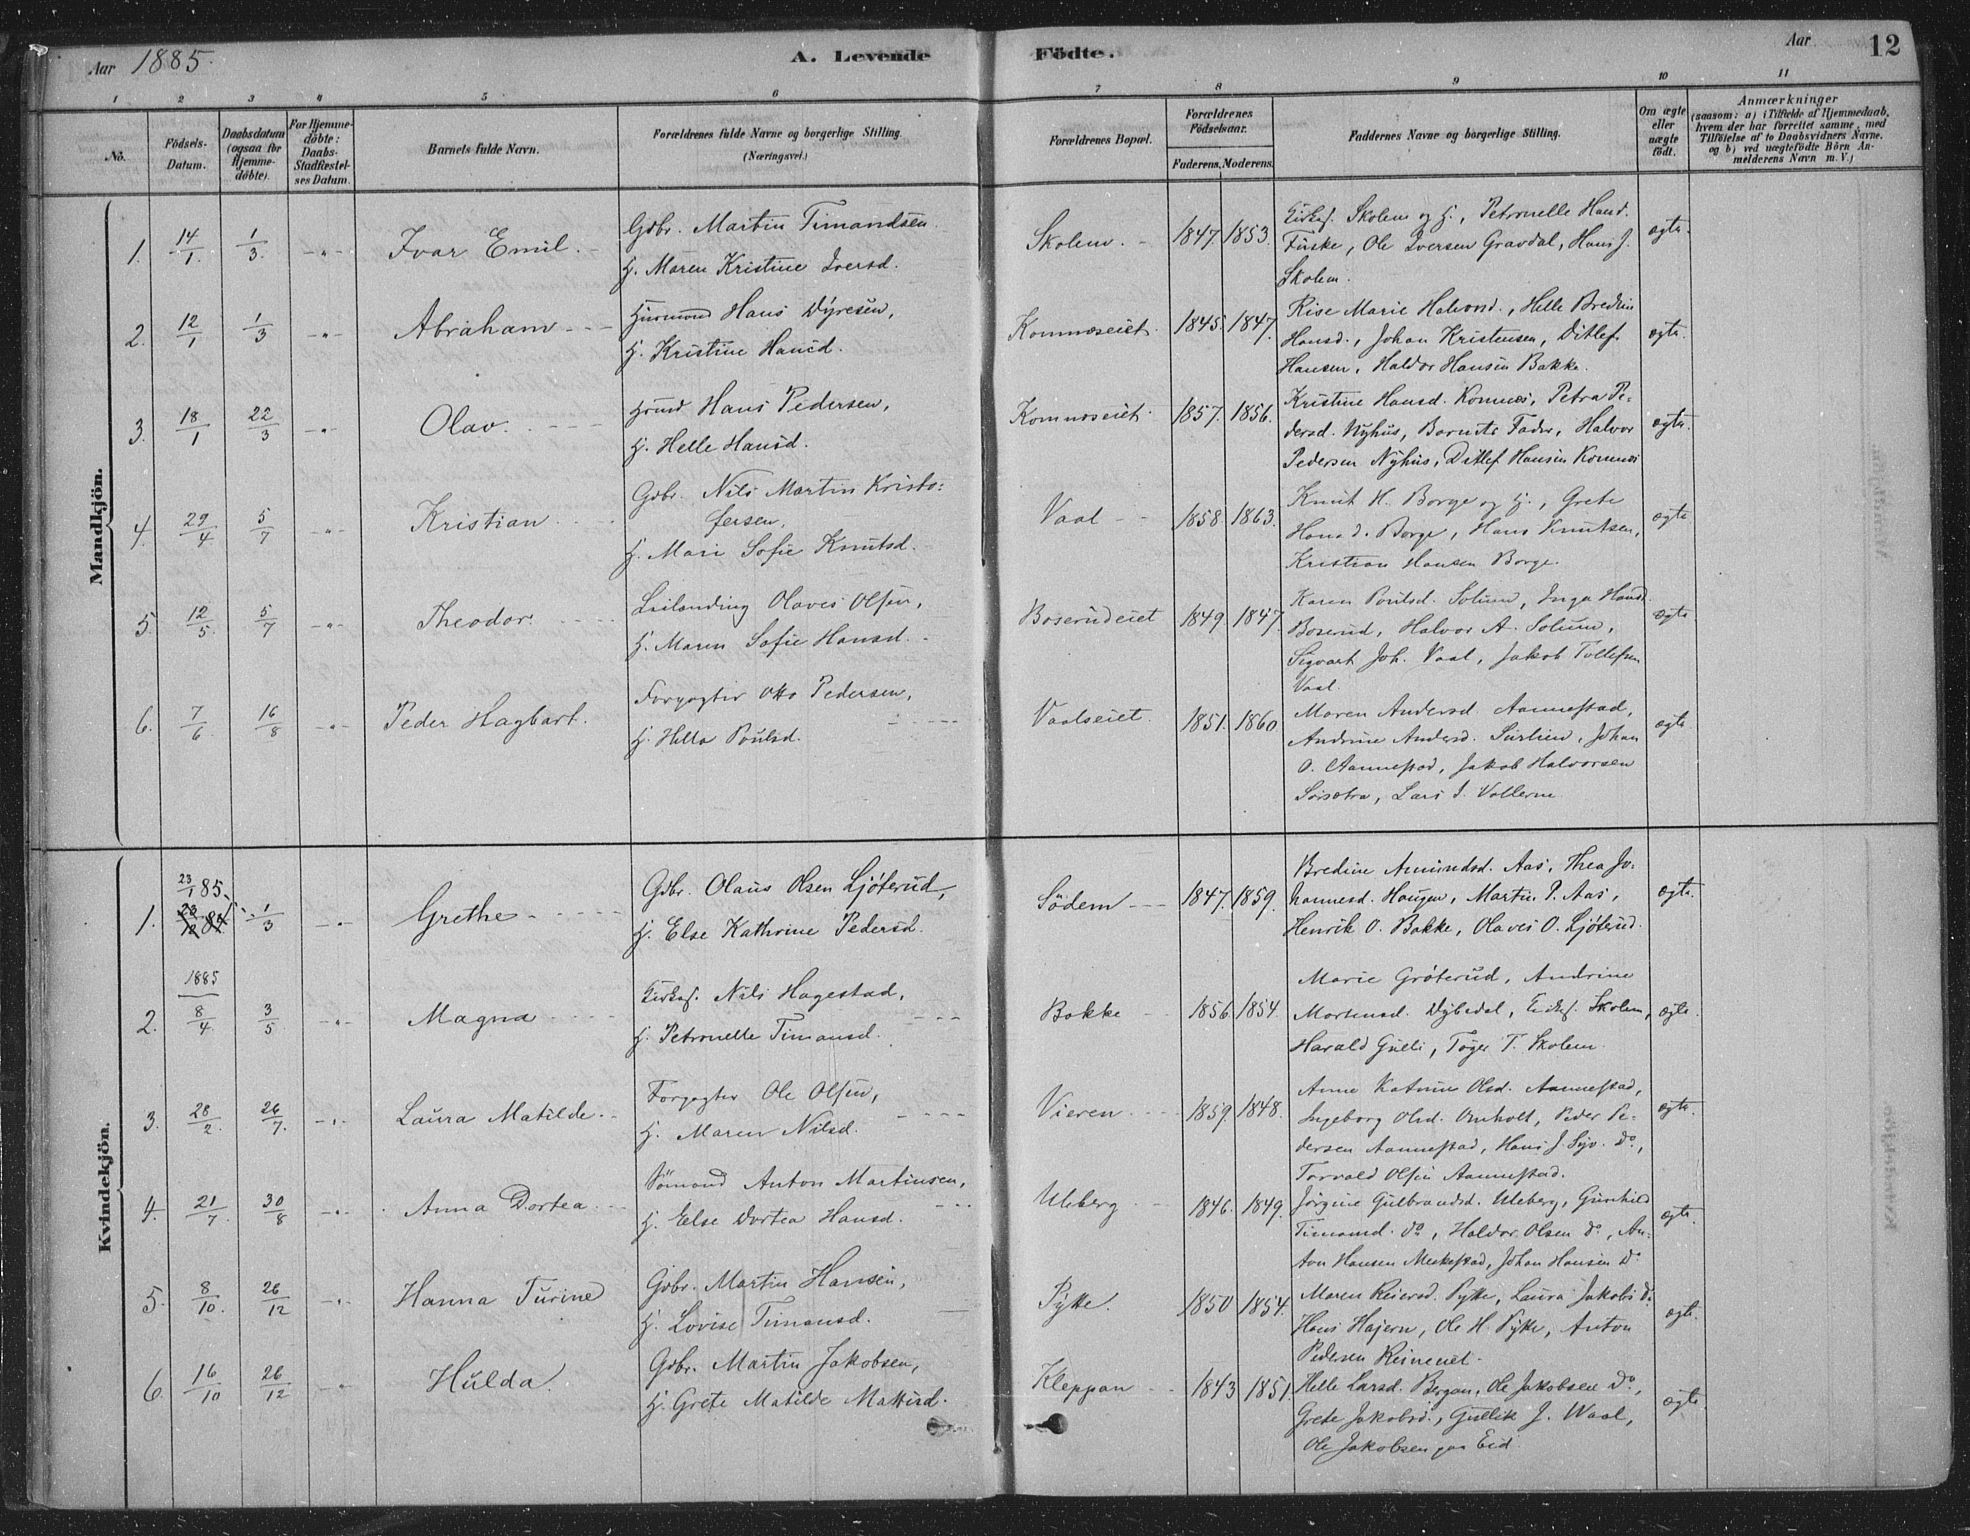 Aar 1885. A. Levende Födte. Aar 12
1 2 3 4 5 6 7 8 9 10 11
No. Födsels-Datum. Daabsdatum (ogsaa for Hjemme-döbte). For Hjemme-döbte: Daabs-Stadfæstel-ses Datum. Barnets fulde Navn. Forældrenes fulde Navne og borgerlige Stilling. (Næringsvei.) Forældrenes Bopæl. Forældrenes Födselsaar. Faderens. Moderens. Faddernes Navne og borgerlige Stilling. Om ægte eller uægte födt. Anmærkninger (saasom: a) i Tilfælde af Hjemmedaab, hvem der har forrettet samme, med Tilföielse af to Daabsvidners Navne. og b) ved uægtefödte Börn Anmelderens Navn m. V.)
Mandkjön.
1. 14/1. 1/3. -"- Ivar Emil. Gdbr. Martin Timandsen
H. Maren Kristine Iversd. Skolem. 1847. 1853. Kirkes. Skolem og H., Petronelle Hansd.
Fuske, Ole Iversen Gravdal, Hans J.
Skolem. ægte.
2. 12/1 1/3 -"- Abraham Husmand Hans Dyresen,
H. Kristine Hansd. Komnæseiet. 1845. 1847. Rise Marie Halvorsd., Helle Bredine
Hansd., Johan Kristensen, Ditlef
Hansen, Haldor Hansen Bakke. ægte.
3. 18/1 22/3 -"- Olav. Hmd Hans Pedersen,
H. Helle Hansd. Komnæseiet. 1857. 1856. Kristine Hansd. Komnæs, Petra Pe-
dersd. Nyhus, Barnets Fader, Halvor
Pedersen Nyhus, Ditlef Hansen Komnæs ægte.
4. 29/4 5/7 -"- Kristian Gdbr. Nils Martin Kristo-
fersen,
H. Mari Sofie Knutsd. Vaal 1858 1863. Knut H. Borge og H., Grete
Hansd. Borge, Hans Knutsen,
Kristian Hansen Borge. ægte
5. 12/5. 5/7 -"- Theodor. Leilending Olaves Olsen,
H. Maren Sofie Hansd. Boserudeiet 1849. 1847. Karen Poulsd. Solum, Inga Hansd.
Boserud, Halvor A. Solum,
Sigvart Joh. Vaal, Jakob Tollefsen
Vaal. ægte
6. 7/6 16/8 -"- Peder Hagbart. Forpagter Otto Pedersen,
H. Hella Poulsd. Vaalseiet. 1851. 1860 Maren Andersd Aannestad,
Andrine Andersd. Surlien, Johan
O. Aannestad, Jakob Halvorsen
Sørsetra, Lars J. Vollerne ægte
Kvindekjön.
1. 23/1 85. 23/12 84. 1/3 -"- Grethe Gdbr. Olaus Olsen Ljøterud,
H. Else Kathrine Pedersd. Södem 1847. 1859. Bredine Amundsd. Aas, Thea Jo-
hannesd. Haugen, Martin P. Aas,
Henrik O. Bakke, Olaves O. Ljøterud. ægte.
1885
2. 8/4. 3/5 -"- Magna Kirkes. Nils Hagestad,
H. Petronelle Timansd. Bakke 1856. 1854. Marie Grøterud, Andrine
Mortensd. Dybedal, Kirkes. Skolem,
Harald Gulli, Tøger T. Skolem. ægte.
3. 28/2. 26/7. -"- Laura Matilde. Forpagter Ole Olsen,
H. Maren Nilsd. Vieren. 1859. 1848. Anne Katrine Olsd. Aannestad,
Ingeborg Olsd. Ornholt, Peder Pe-
dersen Aannestad, Hans J. Do.,
Torvald Olsen Aannestad. ægte.
4. 21/7. 30/8 -"- Anna Dortea. Sömand Anton Martinsen,
H. Else Dortea Hansd. Uleberg 1846. 1849. Jørgine Gulbrandsd. Uleberg, Gunhild
Timansd. Do, Haldor Olsen Do, An-
ton Hansen Meskestad, Johan Hansen Do ægte.
5. 8/10. 26/12 -"- Hanna Turine Gdbr. Martin Hansen,
H. Lovise Timansd. Pytte. 1850 1854. Maren Reiersd. Pytte, Laura Jakobs Do.
Hans Hajern, Ole H. Pytte, Anton
Pedersen ægte.
6. 16/10 26/12 -"- Hulda. Gdbr. Martin Jakobsen,
H. Grete Matilde Mattisd. Kleppan 1843 1851. Helle Larsd. Bergan, Ole Jakobsen Do.,
Grete Jakobsd., Gullik J. Waal,
Ole Jakobsen paa Eid. ægte.